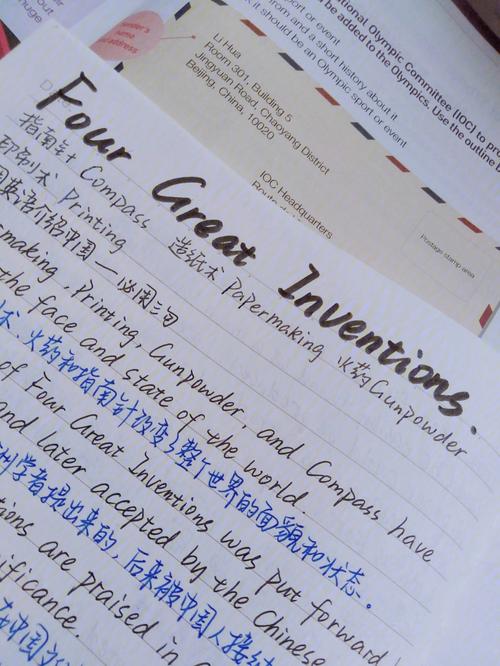 ional Olympic Committee (IOC) to pro
be added to the Olympics. Use the outline
port or event
from and a short history about it
it should be an Olympic sport or event
name
address
Li Hua
Room 301, Building 5
Jingyuan Road, Chaoyang District
Beijing, China, 10020
IOC Headquarters
Postage stamp area
Four Great Inventions.
指南针 Compass 造纸术 Papermaking 火药Gunpowder
印刷术 Printing
英语介绍中国一必周三句
making, Printing, Gunpowder, and Compass have
the face and state of the world.
术、火药和指南针改变了整个世界的面貌和状态。
of Four Great Inventions was put forward
学者提出来的,后来被中国人接
and later accepted by the Chinese
ions are praised in
ificance.
中国